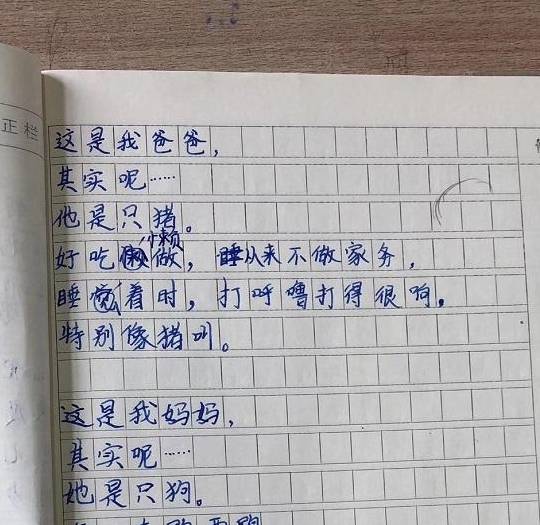 正栏
这是我爸爸，
其实呢……
他是只猪。
好吃懒做，从来不做家务，
睡着时，打呼噜打得很响。
特别像猪叫。
这是我妈妈，
其实呢……
她是只狗。